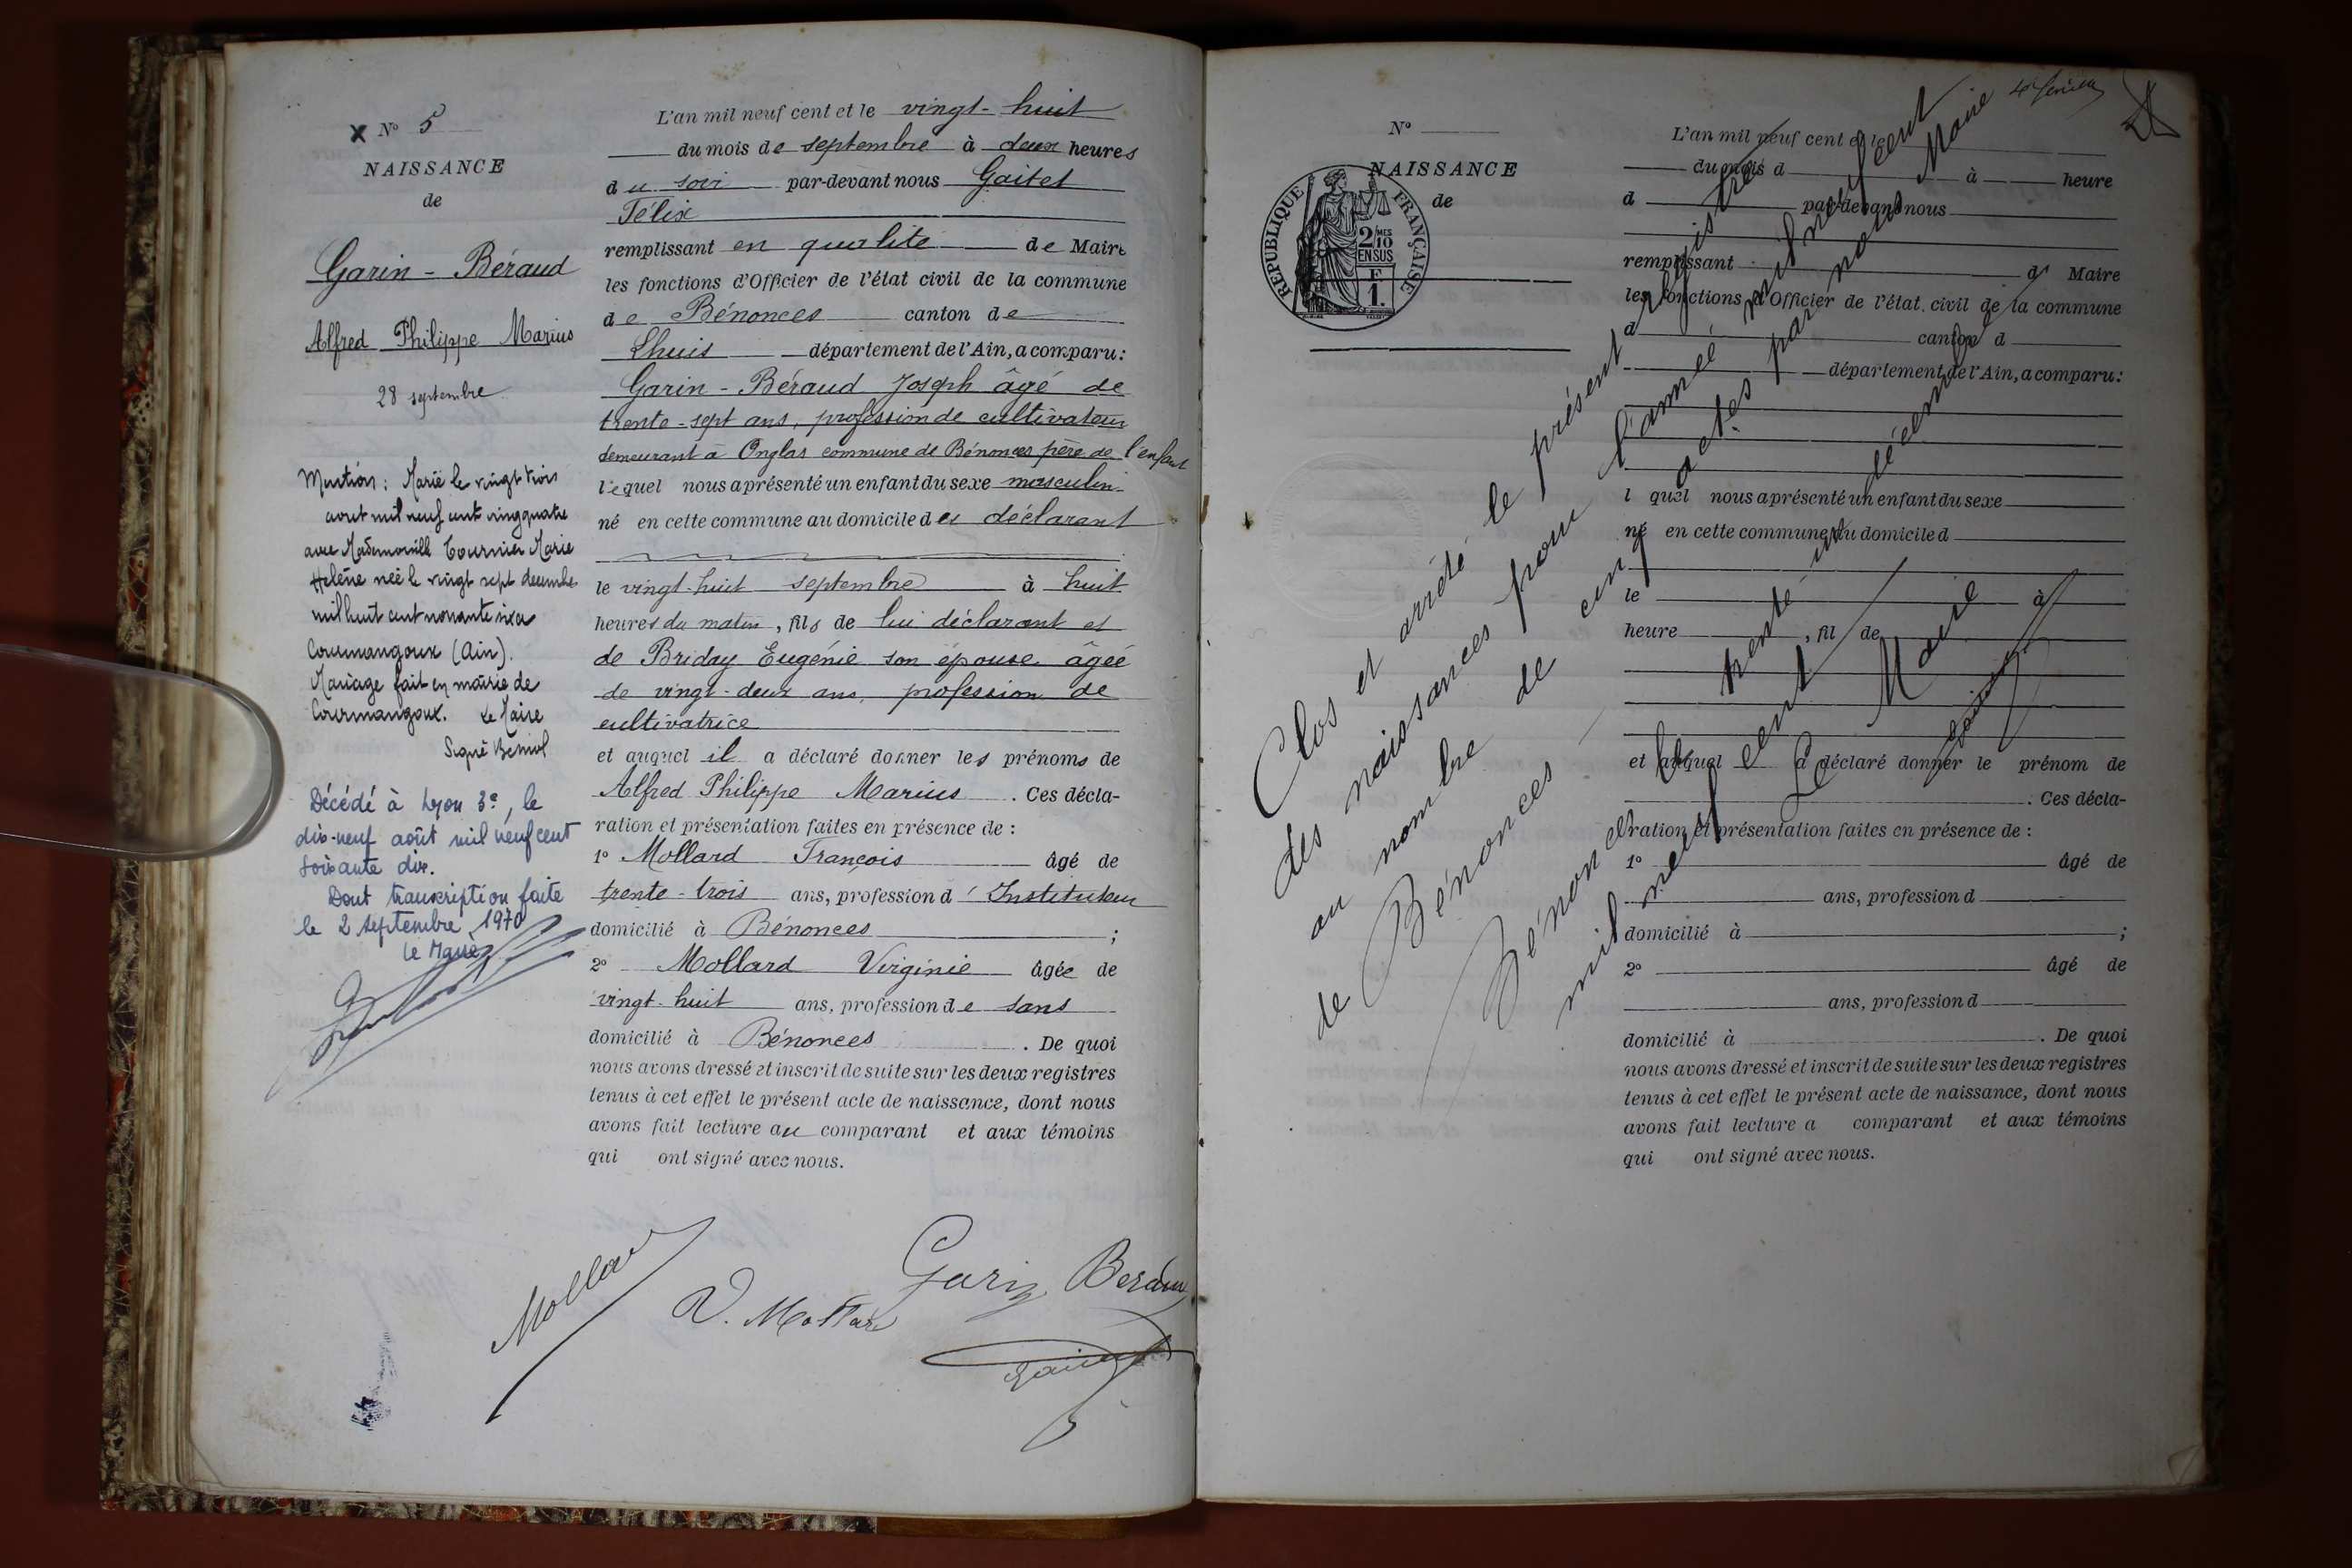 N° 5
NAISSANCE
de
Garin - Béraud
Alfred Philippe Marius
28 septembre
Mention : Marié le vingt trois
aout mil neuf cent vingquatre
avec Mademoiselle Tournier Marie
Helène née le vingt sept decembre
mil huit cent nonante six a
Courmangoux (Ain).
Mariage fait en mairie de
Courmangoux. Le Maire
Signé
Décédé à Lyon 3e, le
dix-neuf août mil neuf cent
soixante dix.
Dont transcription faite
le 2 septembre 1970
le Maire
L'an mil neuf cent et le vingt-huit
du mois de septembre à deux heures
du soir par-devant nous Gaitet
Félix
remplissant en qualité de Maire
les fonctions d'Officier de l'état civil de la commune
de Bénonces canton de
Lhuis département de l'Ain, a comparu :
Garin - Béraud Joseph âgé de
trente-sept ans, profession de cultivateur
demeurant à Onglas commune de Bénonces père de l'enfant
lequel nous a présenté un enfant du sexe masculin
né en cette commune au domicile du déclarant
le vingt-huit septembre à huit
heures du matin, fils de lui déclarant et
de Briday Eugénie son épouse âgée
de vingt-deux ans, profession de
cultivatrice
et auquel il a déclaré donner les prénoms de
Alfred Philippe Marius. Ces décla-
ration et présentation faites en présence de :
1° Mollard François âgé de
trente-trois ans, profession d'Instituteur
domicilié à Bénonces ;
2° Mollard Virginie âgée de
vingt-huit ans, profession de sans
domicilié à Bénonces. De quoi
nous avons dressé et inscrit de suite sur les deux registres
tenus à cet effet le présent acte de naissance, dont nous
avons fait lecture au comparant et aux témoins
qui ont signé avec nous.
Mollard
V. Mollard
Garin Beraud
Gaitet
N°
NAISSANCE
de
REPUBLIQUE FRANÇAISE
2/10
MES
EN SUS
F
1.
L'an mil neuf cent et le
du mois d à heure
d par-devant nous
remplissant d Maire
les fonctions d'Officier de l'état civil de la commune
d canton d
département de l'Ain, a comparu :
l quel nous a présenté un enfant du sexe
né en cette commune au domicile d
le à
heure , fil de
et auquel a déclaré donner le prénom de
. Ces décla-
ration et présentation faites en présence de :
1° âgé de
ans, profession d
domicilié à ;
2° âgé de
ans, profession d
domicilié à . De quoi
nous avons dressé et inscrit de suite sur les deux registres
tenus à cet effet le présent acte de naissance, dont nous
avons fait lecture a comparant et aux témoins
qui ont signé avec nous.
Clos et arrêté le présent registre
des naissances pour l'année mil neuf cent
au nombre de cinq actes par nous Maire
de Bénonces
Bénonces le trente un décembre
mil neuf cent
Le Maire
Gaitet